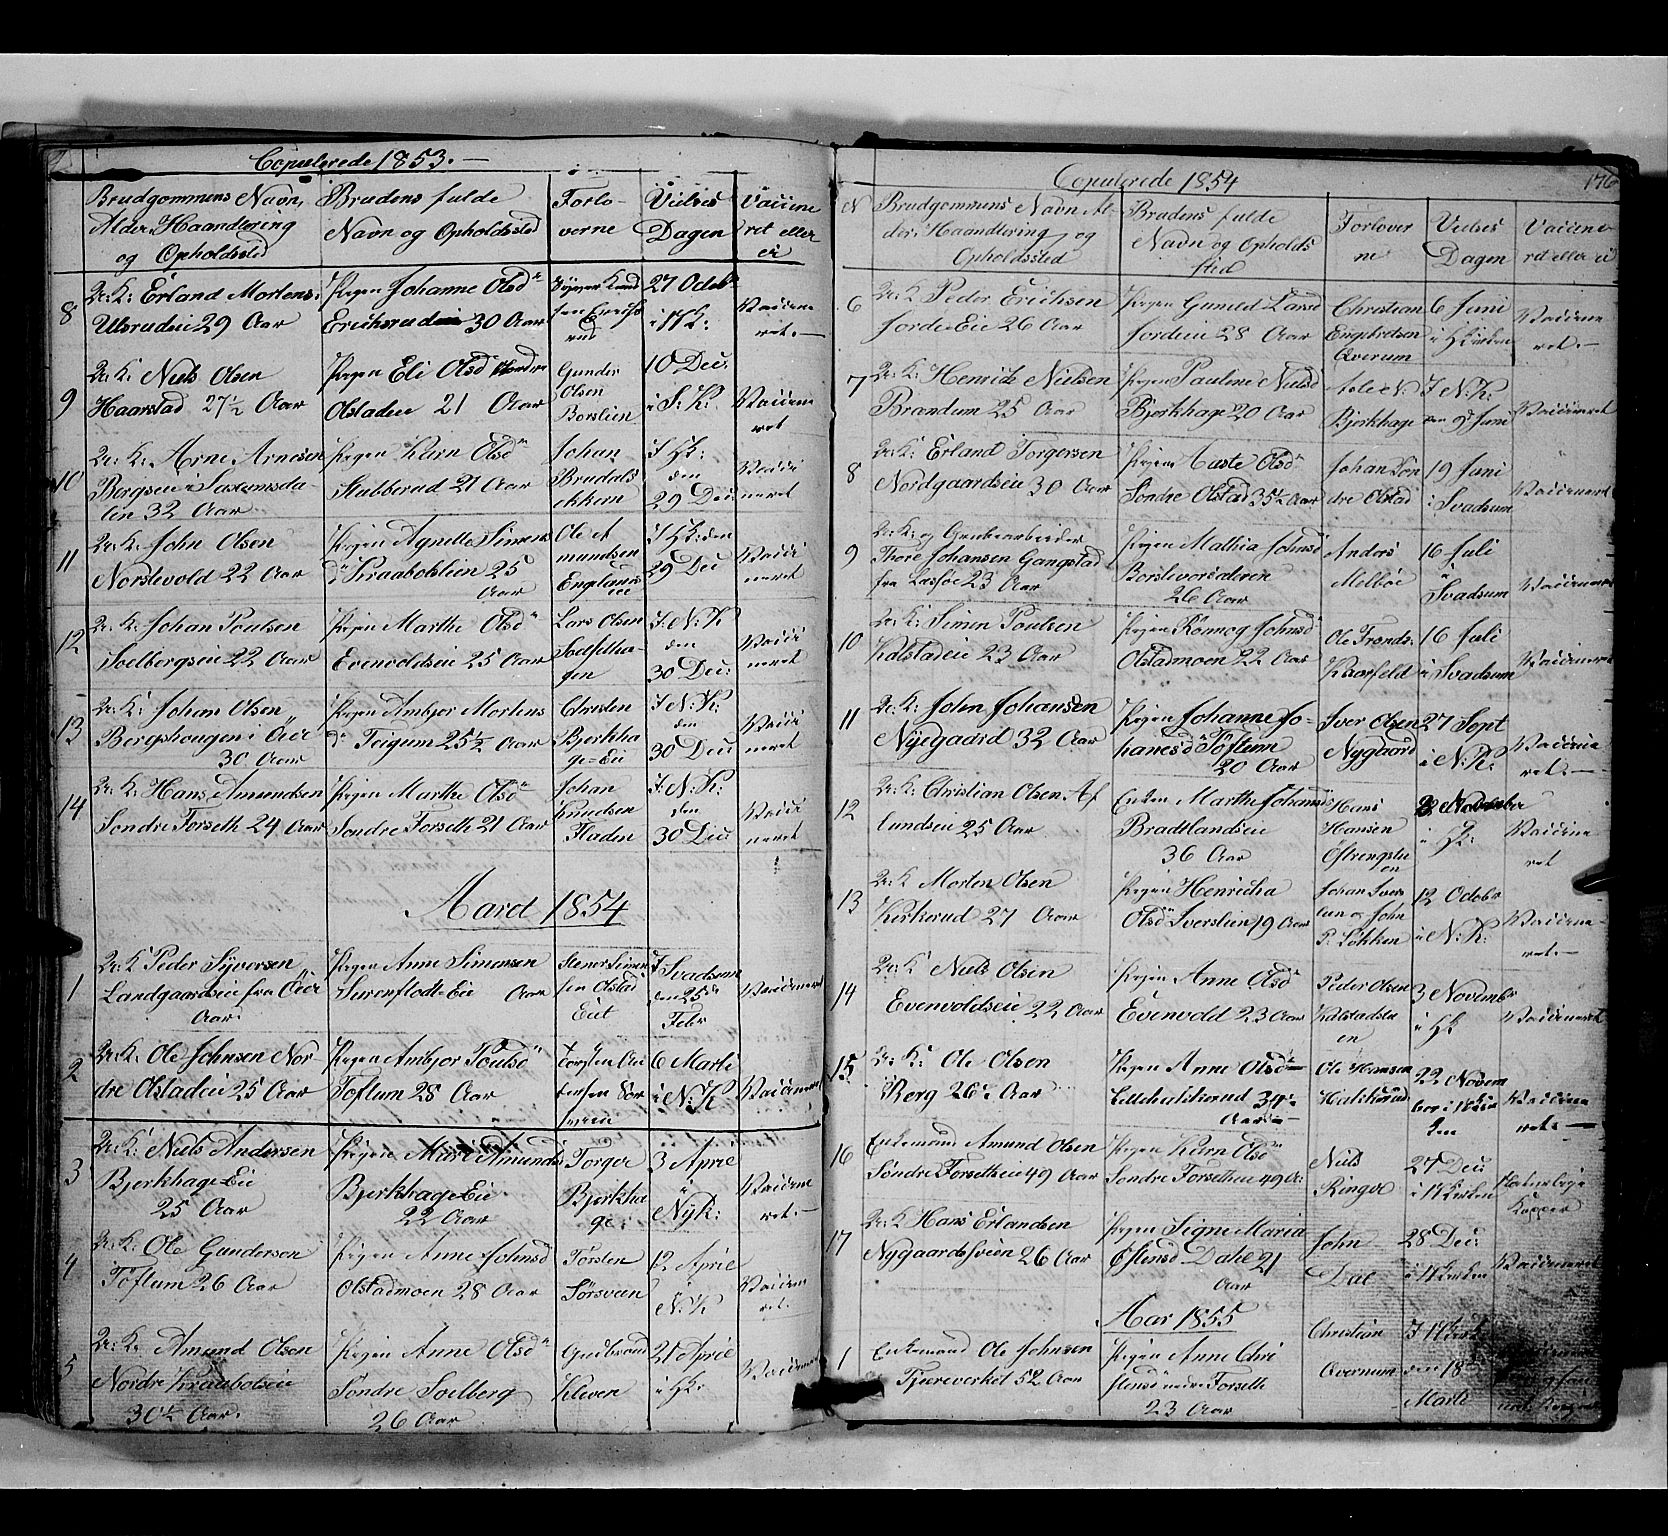 Copulerede 1853.
Brudgommens Navn, Alder, Haandtering og Opholdssted
Brudens fulde Navn og Opholdssted
Forloverne
Vielses Dagen
Vaccineret eller ei
8
U: K: Erland Mortens:
Ulsrudeie 29 Aar
Pigen Johanne Olsdr
Eriksrudeie 30 Aar
27 Octobr
i HK:
Vaccineret.
9
U: K: Niels Olsen
Haarstad 27½ Aar
Pigen Eli Olsd
Olstadeie 21 Aar
Gunder
Olsen
Borslien
10 Dec:
i S. K:
Vaccineret
10
U: K: Arne Arnesen
Bergseie i Saxumsda-
len 32 Aar
Pigen Karn Olsd
Stubberud 21 Aar
Johan
Brudals
ekkern
I HK:
den
29 Dec:
Vaccineret
11
U: K: John Olsen
Norslevold 22 Aar
Pigen Agnethe Simens
d Kraabolslien 25
Aar
Ole A
mundsen
I HK: den
29 Dec
Vaccineret
12
U: K: Johan Poulsen
Soelbergseie 22 Aar
Pigen Marthe Olsd
Evenvoldseie 25 Aar
Lars Olsen
I N: K
den
30 Dec:
Vaccineret
13
U: K: Johan Olsen
Bergshougen i Öier
30 Aar
Pigen Ambjor Mortens
d Teigum 25½ Aar
Christen
Bjerkha
ge-Eie
I N: K:
den
30 Dec
Vaccineret
14
U: K: Hans Amundsen
Söndre Forseth 24 Aar
Pigen Marthe Olsd
Söndre Forseth 21 Aar
Johan
Knudsen
Fladen
I N: K:
den
30 Dec:
Vaccineret
Aaret 1854
1
U: K Peder Syversen
Landgaardseie fra Öier
Aar
Pigen Anne Simensen
Surenflodt-Eie Aar
Stener Simen
sen Olstad
Eiet
I Svadsum
den 25
Febr
Vaccineret
2
U: K: Ole Johnsen Nor
dre Olstadeie 25 Aar
Pigen Ambjor Poulsd
Toftum 28 Aar
6 Marti
i N: K
Vaccineret
3
U: K: Niels Andersen
Bjerkhage-Eie
25 Aar
Pigen Mari Amunds
Bjerkhage-Eie
22 Aar
Torger
Bjerkha
ge:
3 April
i
Nyk:
Vaccineret.
4
U: K: Ole Gundersen
Toftum 26 Aar
Pigen Anne Johnsd
Olstadmoen 28 Aar
Torsten
Sørsveen
12 April
i
N: K
Vaccineret.
5
U: K: Amund Olsen
Nordre Kraabolseie
30½ Aar.
Pigen Anne Olsd
Söndre Soelberg
26 Aar
Gudbrand
Kleven
21 April
i HK:
Vaccineret
Copulerede 1854
176
N
Brudgommens Navn Al-
der, Haandtering og
Opholdssted
Brudens fulde
Navn og Opholds
sted
Forlover
ne
Vielses
Dagen
Vaccine-
ret eller ei
6
U: K Peder Erichsen
Jorde-Eie 26 Aar
Pigen Guneld Larsd
Jordeie 28 Aar
Christian
Engebretsen
Qverum
6 Juni
Vaccineret.
7
U: K: Henrik Nielsen
Brandum 25 Aar
Pigen Pauline Nielsd
Bjerkhage 20 Aar
Bjerkhage
I N: K:
den 9d Juni
Vaccineret
8
U: K: Erland Torgersen
Nordgaardseie 30 Aar
Pigen Aaste Olsd
Söndre Olstad 35½ Aar
Johan Søn
dre Olstad
19 Juni
i Svadsum
Vaccineret
9
U: K: og Grubearbeider
Thore Johansen Gangstad
23 Aar
Pigen Mathia Johnsd
26 Aar
Anders
Melbøe
16 Juli
i
Svadsum
Vaccineret
10
U: K: Simen Poulsen
Kalstadeie 23 Aar
Pigen Rönnog Johnsd
Olstadmoen 22 Aar
Ole Tronds:
16 Juli
i Svadsum
Vaccineret
11
U: K: John Johansen
Nyegaard 32 Aar
Pigen Johanne Jo-
hanesd Toftum
20 Aar
Iver Olsen
Nygaard
27 Sept
i N: K:
Vaccineret.
12
U: K: Christian Olsen Af
lundseie 25 Aar
Enken Marthe Johansd
Bradtlandseie
36 Aar
Hans
Hansen
Novembr
i HK:
Vaccineret
13
U: K Morten Olsen
Kirkerud 27 Aar
Pigen Henricha
Olsd Sverslien 19 Aar
12 Octobr
i N: K:
Vaccineret.
14
U: K Niels Olsen
Evenvoldseie 22 Aar
Pigen Anne Olsd
Evenvold 23 Aar
Peder Olsen
Kalstadsla
en
3 Novembr
i HK
Vaccineret
15
U: K: Ole Olsen
Berg 26 Aar
Pigen Anne Olsd
Lillehulskerud 34
Aar
Ole Hansen
22 Novem
ber i
Vaccineret.
16
Enkemand Amund Olsen
Söndre Forsetheie 49 Aar
Pigen Karn Olsd
Söndre Forsetheie 49 A:
Niels
Ringøe
27 Dec
i HKirken
Naturlige
Kopper
17
U: K Hans Erlandsen
Nygaardssveen 26 Aar
Pigen Signe Maria
Östensd Dahl 21
Aar
John
Dal
28 Dec:
i HKirken
Vaccineret
Aar 1855
1
Enkemand Ole Johnsen
Tjereverket 52 Aar
Pigen Anne Chri
stensd nedre Forseth
23 Aar
Christian
Qvernum
I HKirk
den 18
Marti